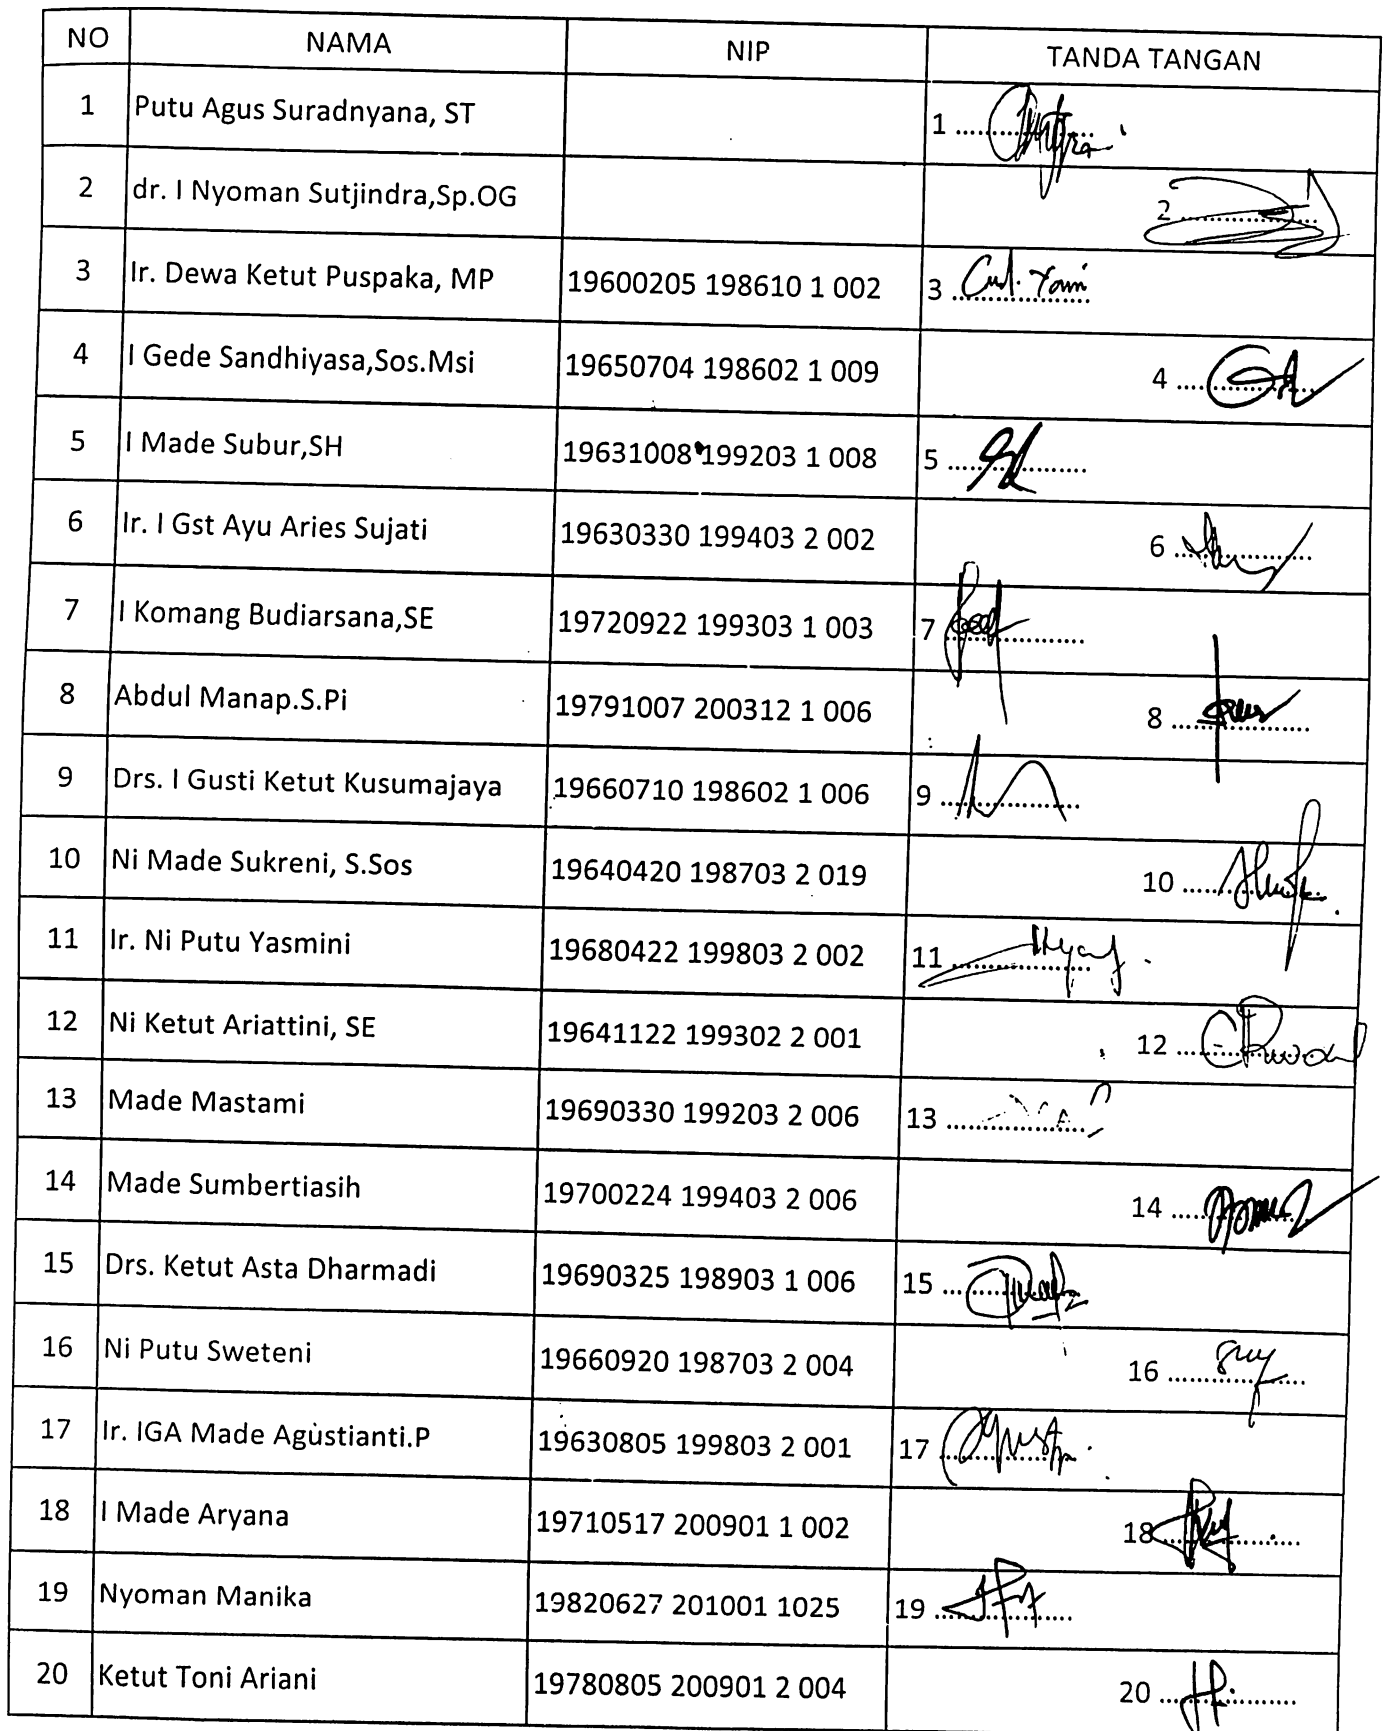 NO NAMA NIP TANDA TANGAN
1 Putu Agus Suradnyana, ST 1 ....................
2 dr. I Nyoman Sutjindra,Sp.OG 2 ....................
3 Ir. Dewa Ketut Puspaka, MP 19600205 198610 1 002 3 ....................
4 I Gede Sandhiyasa,Sos.Msi 19650704 198602 1 009 4 ....................
5 I Made Subur,SH 19631008 199203 1 008 5 ....................
6 Ir. I Gst Ayu Aries Sujati 19630330 199403 2 002 6 ....................
7 I Komang Budiarsana,SE 19720922 199303 1 003 7 ....................
8 Abdul Manap.S.Pi 19791007 200312 1 006 8 ....................
9 Drs. I Gusti Ketut Kusumajaya 19660710 198602 1 006 9 ....................
10 Ni Made Sukreni, S.Sos 19640420 198703 2 019 10 ....................
11 Ir. Ni Putu Yasmini 19680422 199803 2 002 11 ....................
12 Ni Ketut Ariattini, SE 19641122 199302 2 001 12 ....................
13 Made Mastami 19690330 199203 2 006 13 ....................
14 Made Sumbertiasih 19700224 199403 2 006 14 ....................
15 Drs. Ketut Asta Dharmadi 19690325 198903 1 006 15 ....................
16 Ni Putu Sweteni 19660920 198703 2 004 16 ....................
17 Ir. IGA Made Agustianti.P 19630805 199803 2 001 17 ....................
18 I Made Aryana 19710517 200901 1 002 18 ....................
19 Nyoman Manika 19820627 201001 1025 19 ....................
20 Ketut Toni Ariani 19780805 200901 2 004 20 ....................